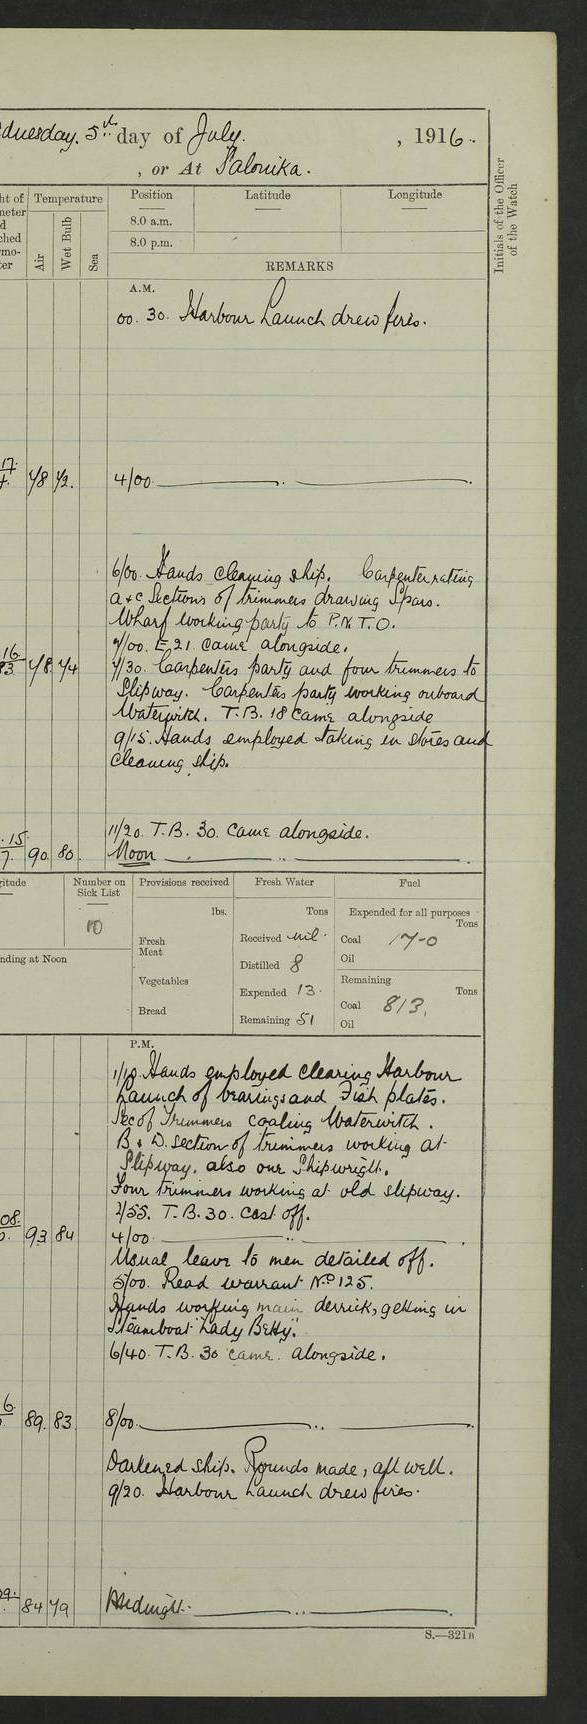 duesday. 5th day of July. , 1916.
, or At Salonika.
ht of
meter
d
ched
rmo-
ter
Temperature
Air
Wet Bulb
Sea
Position
Latitude
Longitude
8.0 a.m.
8.0 p.m.
Initials of the Officer
of the Watch
REMARKS
A.M.
00.30. Harbour Launch drew fires.
17. 78 72. 4/00
6/00. Hands cleaning ship. Carpenter rating
a & c Sections of trimmers drawing Spars.
Wharf working party to P.N.T.O.
7/00. E 21. came alongside.
16
83 78. 74 7/30. Carpenters party and four trimmers to
Slipway. Carpenters party working onboard
Waterwitch. T.B. 18 came alongside
9/15. Hands employed taking in stores and
cleaning ship.
11/20. T.B. 30. came alongside.
.15.
7. 90. 80. Noon
gitude
Number on
Sick List
10
nding at Noon
Provisions received
lbs.
Fresh
Meat
Vegetables
Bread
Fresh Water
Tons
Received nil.
Distilled 8
Expended 13.
Remaining 51
Fuel
Expended for all purposes
Tons
Coal 17-0
Oil
Remaining
Tons
Coal 813.
Oil
P.M.
1/10. Hands employed clearing Harbour
Launch of bearings and Fish plates.
Sec of Trimmers coaling Waterwitch.
B & D. section of trimmers working at
Slipway. also our Shipwright.
Four trimmers working at old slipway.
2/55. T.B. 30. cast off.
08.
93 84 4/00
Usual leave to men detailed off.
5/00. Read warrant No 125.
Hands working main derrick, getting in
Steamboat "Lady Betty".
6/40. T.B. 30 came alongside.
6.
89. 83. 8/00
Darkened ship. Rounds made, all well.
9/20. Harbour Launch drew fires.
29.
84 79 Midnight.
S.—321B